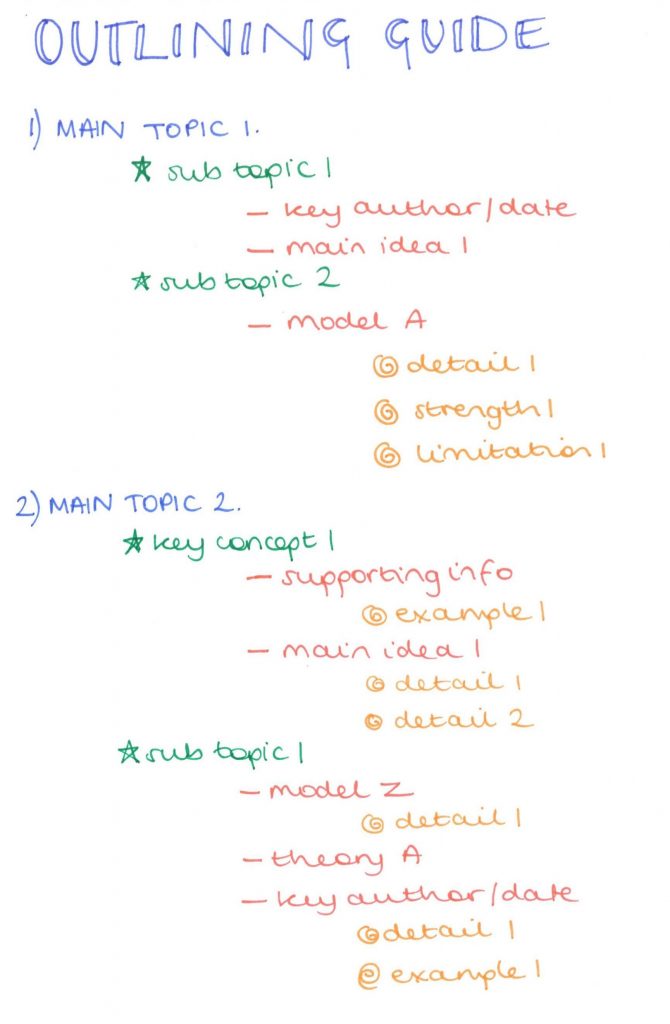 OUTLINING GUIDE
1) MAIN TOPIC 1.
☆ sub topic 1
– key author/date
– main idea 1
☆ sub topic 2
– model A
◎ detail 1
◎ strength 1
◎ limitation 1
2) MAIN TOPIC 2.
☆ key concept 1
– supporting info
◎ example 1
– main idea 1
◎ detail 1
◎ detail 2
☆ sub topic 1
– model Z
◎ detail 1
– theory A
– key author/date
◎ detail 1
◎ example 1